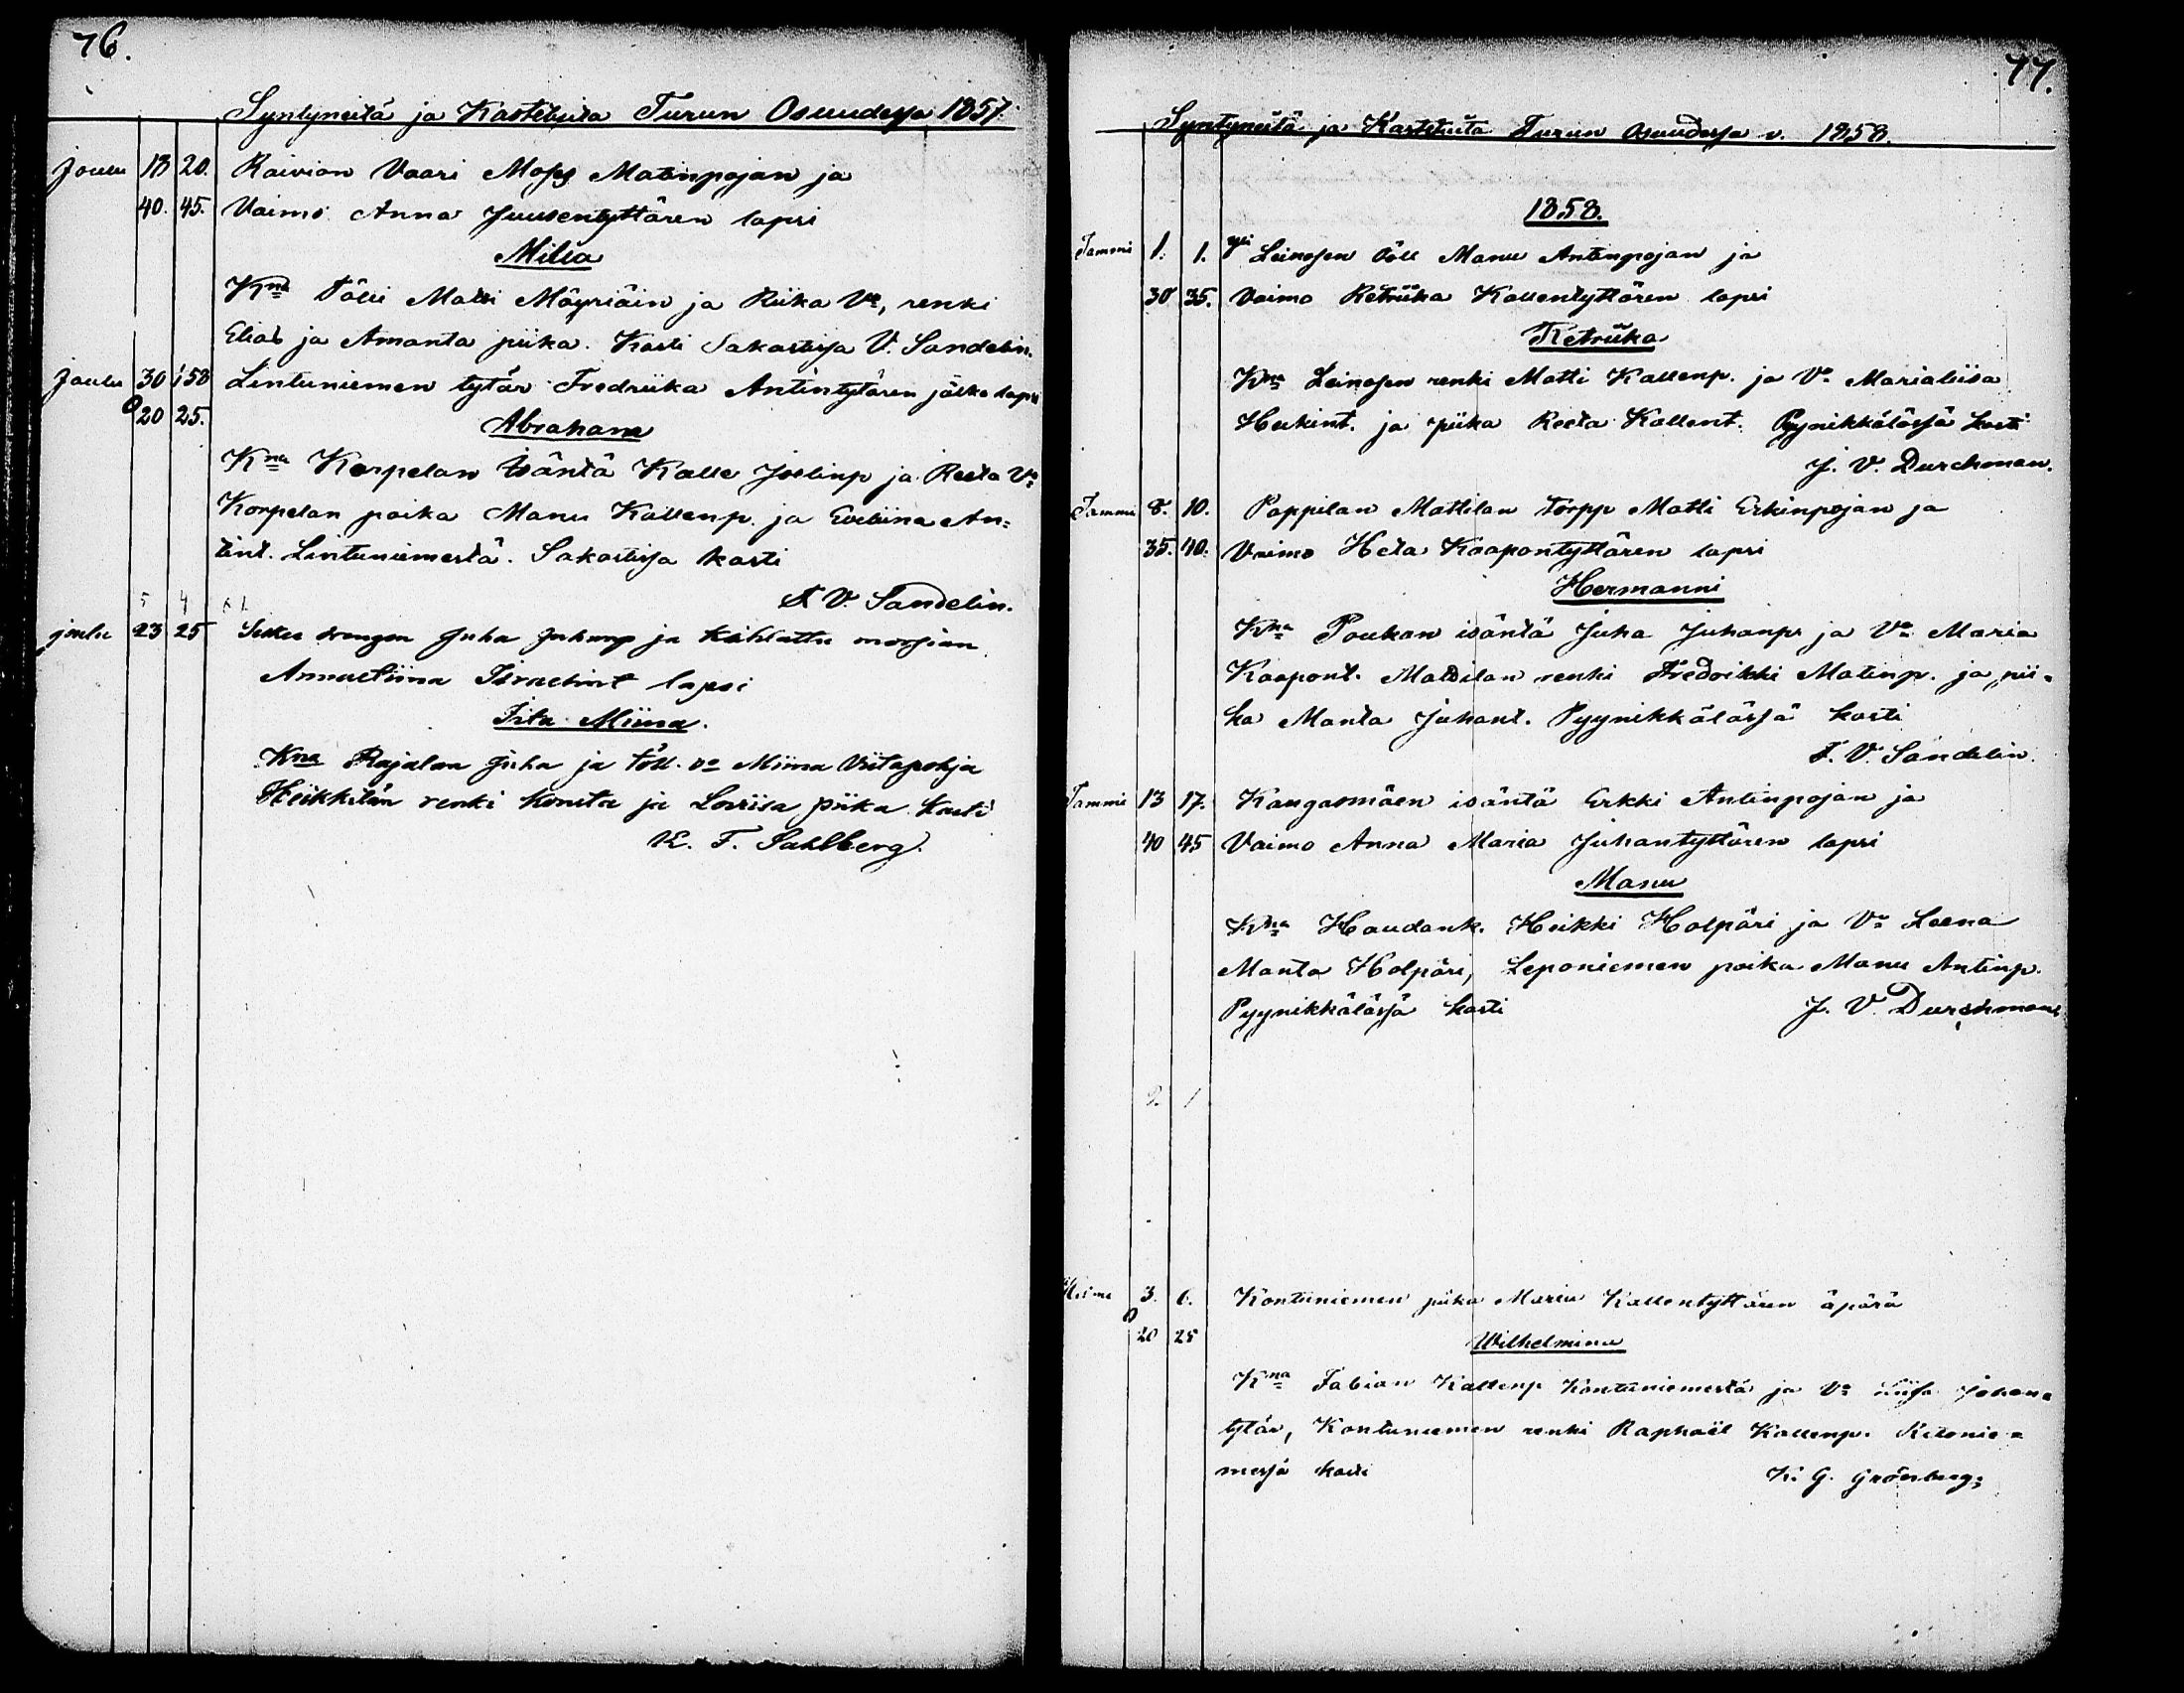 76.
Syntyneitä ja Kastetuita Turun Osuudessa 1857.
Joulu 18 20. Raivion Vaari Mosis Matinpojan ja
40. 45. Vaimo Anna Juusentyttären lapsi
Milia
Kna Tölli Matti Mäyriäin ja Riika Vo, renki
Elias ja Amanta piika. Kasti Sakastissa V. Sandelin.
Joulu 30 1/58 Lintuniemen tytär Fredriika Antintytären jälke lapsi
20 25.
Abraham
Kna Korpelan isäntä Kalle Joelinp ja Reeta Vo
Korpelan poika Manu Kallenp. ja Eveliina An-
tint. Lintuniemestä. Sakastissa kasti
F. V. Sandelin.
5 4
joulu 23 25 drengen Juha Juhanp ja kihlattu morsian
Annastiina Israelint lapsi
Iita Miina.
Kna Rajalan Juha ja töll. vo Miina Viitapohja
Heikkilän renki Konsta ja Loviisa piika. Kasti
K. F. Sahlberg.
77.
Syntyneitä ja Kastetuita Turun Osuudessa v. 1858.
1858.
Tammi 1. 1. Leinosen töll Manu Antinpojan ja
30 35. Vaimo Retriika Kallentyttären lapsi
Retriika
Kna Leinosen renki Matti Kallenp. ja Vo Marialiisa
Heikint. ja piika Reeta Kallent. Pyynikkälässä kasti
J. V. Durchman.
Tammi 8. 10. Pappilan Mattilan torpp Matti Erkinpojan ja
35. 40. Vaimo Heta Kaapontyttären lapsi
Hermanni
Kna Poukan isäntä Juha Juhanp. ja Vo Maria
Kaapont. Mattilan renki Fredrikki Matinp. ja pii-
ka Manta Juhant. Pyynikkälässä kasti
F. V. Sandelin.
Tammi 13 17. Kangasmäen isäntä Erkki Antinpojan ja
40 45 Vaimo Anna Maria Juhantyttären lapsi
Manu
Kna Haudank. Heikki Holpäri ja Vo Leena
Manta Holpäri, Leponiemen poika Manu Antinp.
Pyynikkälässä kasti J. V. Durchman
Helmi 3. 6. Kontuniemen piika Maria Kallentyttären äpärä
20 25
Wilhelmina
Kna Fabian Kallenp Kontuniemestä ja Vo Liisa Johan-
tytär, Kontuniemen renki Raphaël Kallenp.
kasti K. G. Grönberg.